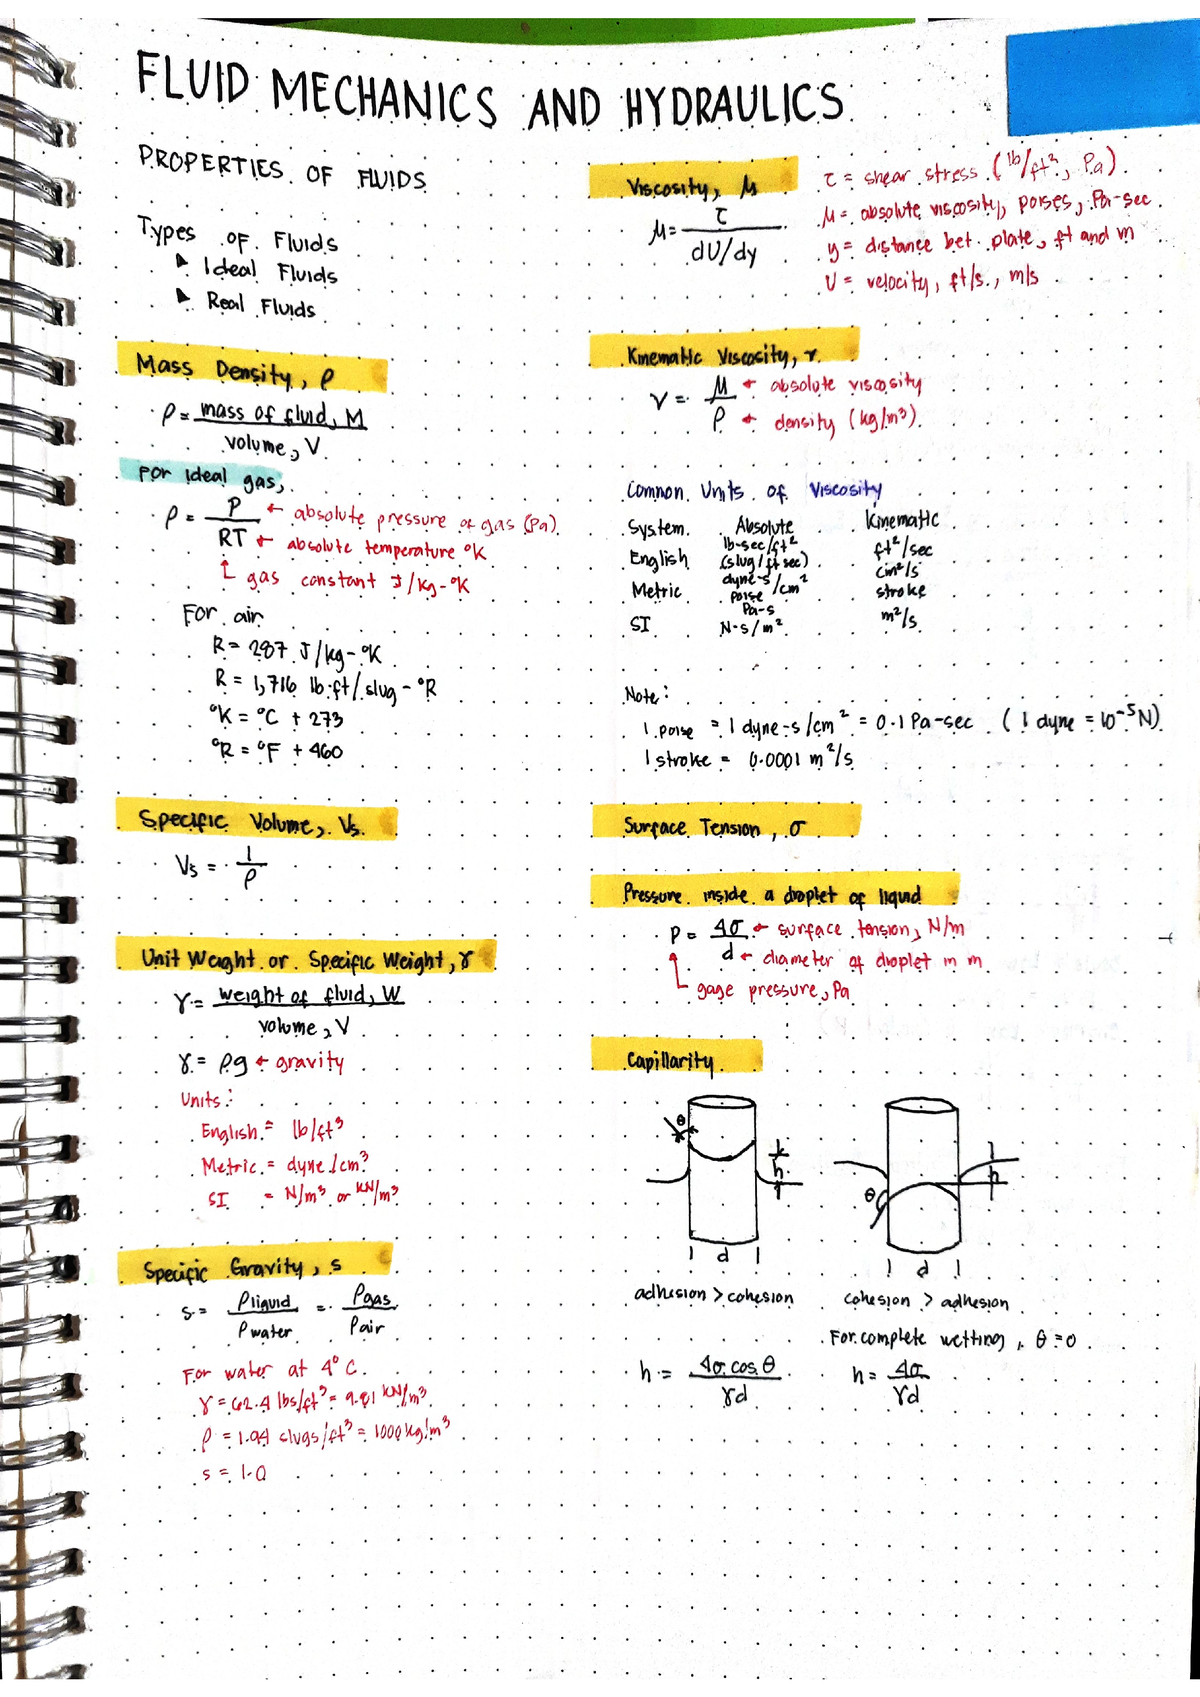 FLUID MECHANICS AND HYDRAULICS
PROPERTIES OF FLUIDS
Types of Fluids
▶ Ideal Fluids
▶ Real Fluids
Mass Density, ρ
ρ = mass of fluid, M
volume, V
For ideal gas,
ρ = P ← absolute pressure of gas (Pa)
RT ← absolute temperature °K
gas constant J/kg-°K
For air
R = 287 J/kg-°K
R = 1,716 lb·ft/slug-°R
°K = °C + 273
°R = °F + 460
Specific Volume, Vs
Vs = 1
ρ
Unit Weight or Specific Weight, γ
γ = weight of fluid, W
volume, V
γ = ρg ← gravity
Units:
English = lb/ft³
Metric = dyne/cm³
SI = N/m³ or KN/m³
Specific Gravity, s
s = ρliquid = ρgas
ρwater ρair
For water at 4°C.
γ = 62.4 lbs/ft³ = 9.81 KN/m³
ρ = 1.94 slugs/ft³ = 1000 kg/m³
s = 1.0
Viscosity, μ
μ = τ
dU/dy
τ = shear stress (lb/ft², Pa)
μ = absolute viscosity, poises, Pa-sec
y = distance bet. plate, ft and m
U = velocity, ft/s, m/s
Kinematic Viscosity, r
ν = μ ← absolute viscosity
ρ ← density (kg/m³)
Common Units of Viscosity
System Absolute Kinematic
English lb-sec/ft² (slug/ft sec) ft²/sec
Metric dyne-s/cm² poise cm²/s stroke
SI Pa-s N-s/m² m²/s
Note:
1 poise = 1 dyne-s/cm² = 0.1 Pa-sec (1 dyne = 10⁻⁵N)
1 stroke = 0.0001 m²/s
Surface Tension, σ
Pressure inside a droplet of liquid
P = 4σ ← surface tension, N/m
d ← diameter of droplet in m
gage pressure, Pa
Capillarity
θ
h
d
adhesion > cohesion
θ
h
d
cohesion > adhesion
For complete wetting, θ = 0
h = 4σ cos θ
γd
h = 4σ
γd